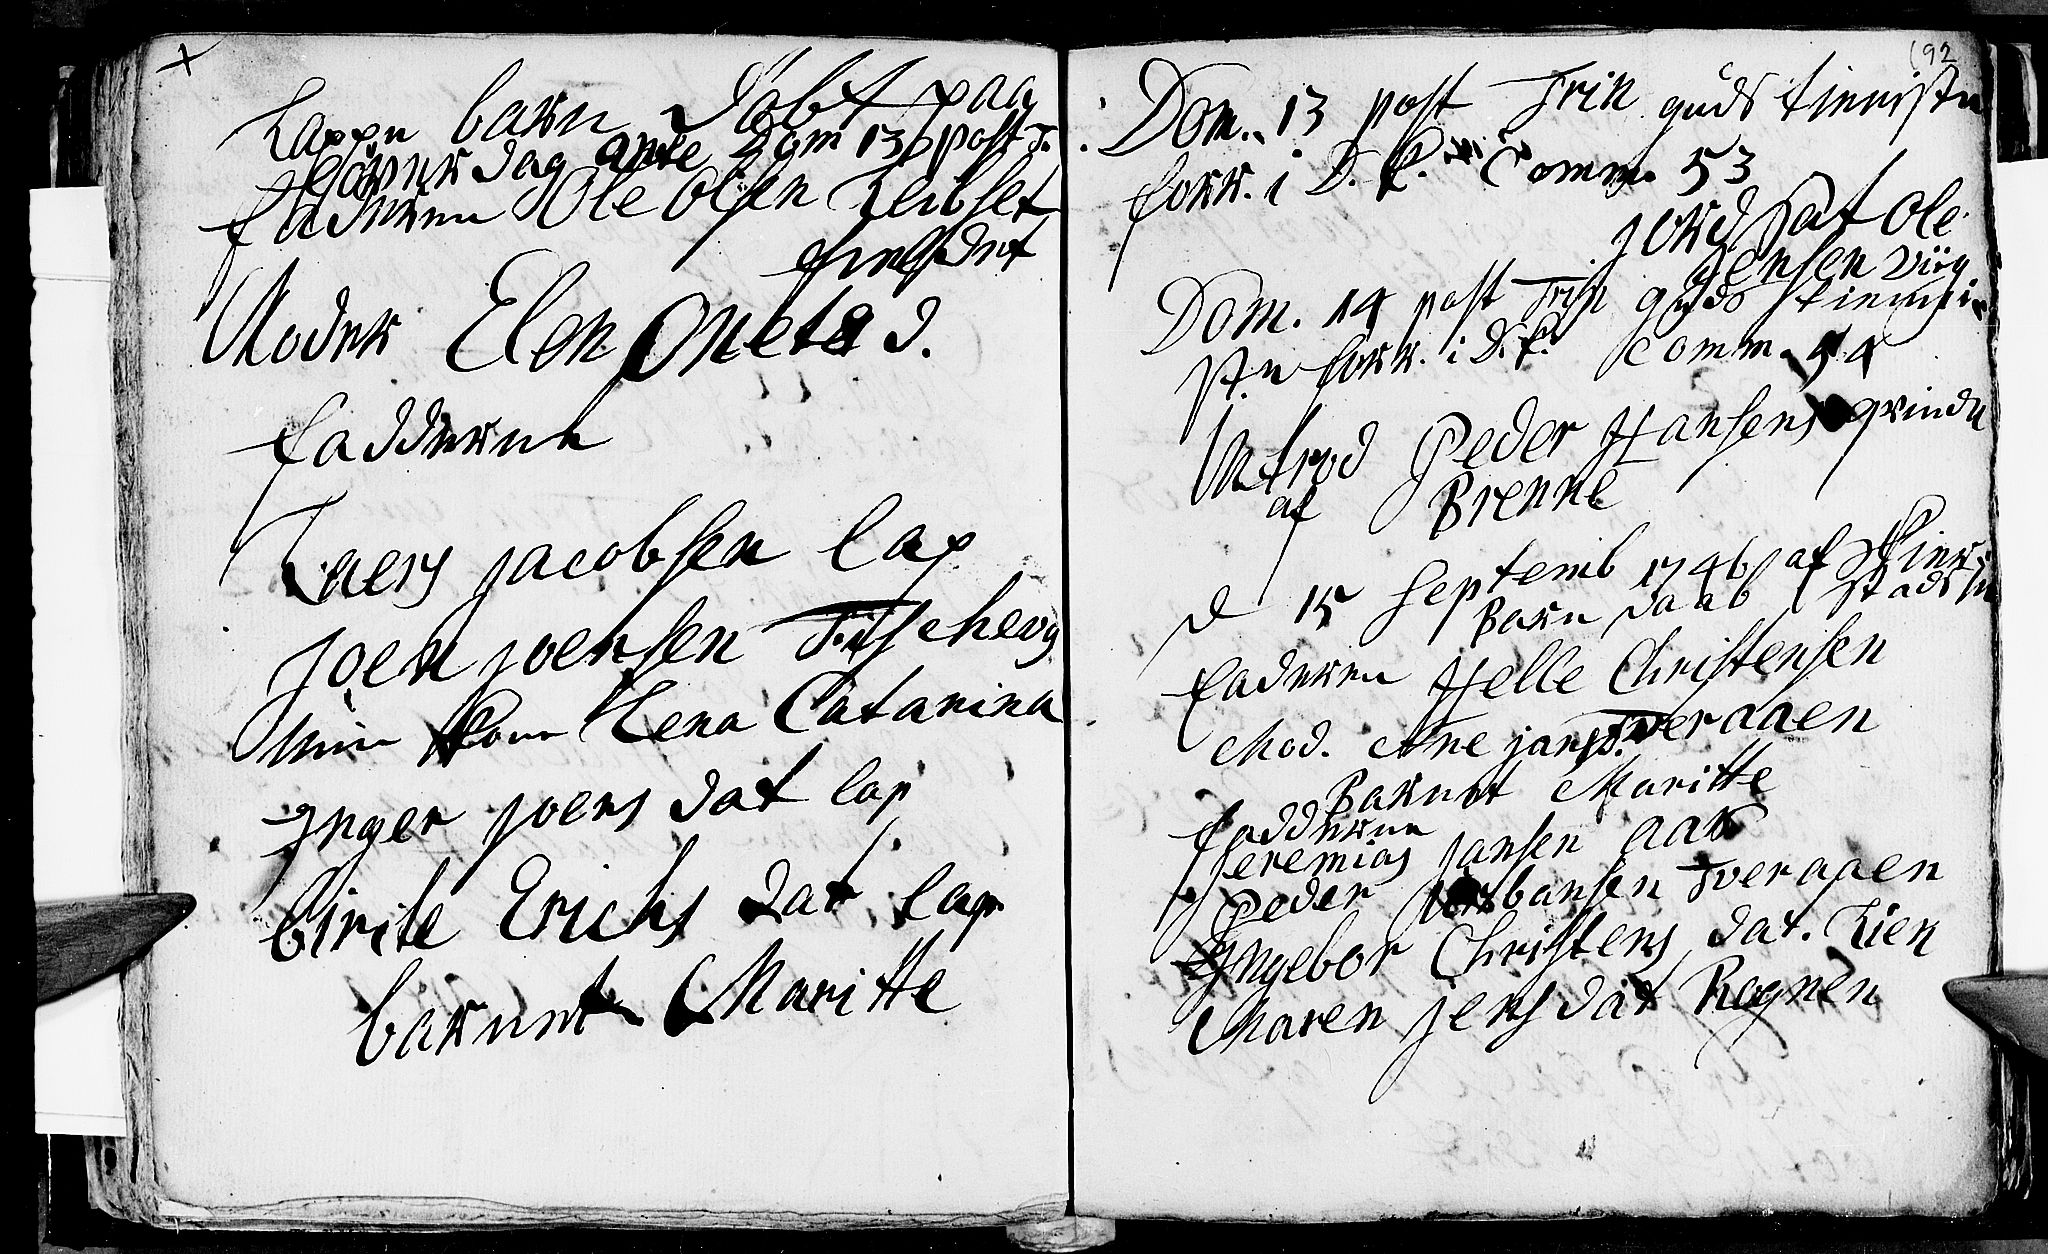 x
Lappe barn Döbt paa
Löverdag ante Dom 13 post T.
faderen Ole Olsen Leibset
Moder Elen Oneta d.
fadderne
Laers jacobsen lap
joen joensen
min Kone Lena Catarina
Inger joens dat lap
Cirile Erichs dat lap
barnet Maritte
192
Dom. 13 post Trin guds tienisten
forr. i D. K. Comm. 53
jord sat Ole
Jensen
Dom. 14 post Trin guds tieni
sten forr. i D. K. Comm. 54
Introd Peder Hansens qvinde
af Brenne
d 15 Septemb 1746 af
Barn daab
faderen Helle Christensen
Mod. Ane jansd. Tveraaen
Barnet Maritte
fadderne
Jeremias jansen aas
Peder Tveraaen
Ingebor Christens dat. Lien
Maren jens dat Rognen